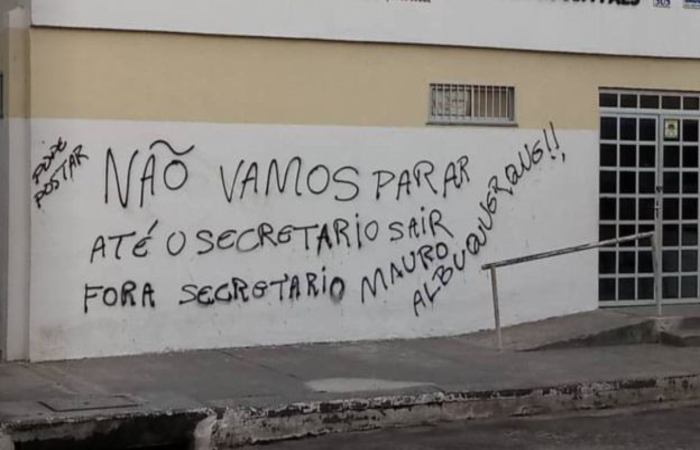 SUS
PODE
POSTAR
NÃO VAMOS PARAR
ATÉ O SECRETARIO SAIR
FORA SECRETARIO MAURO
ALBUQUERQUE!!